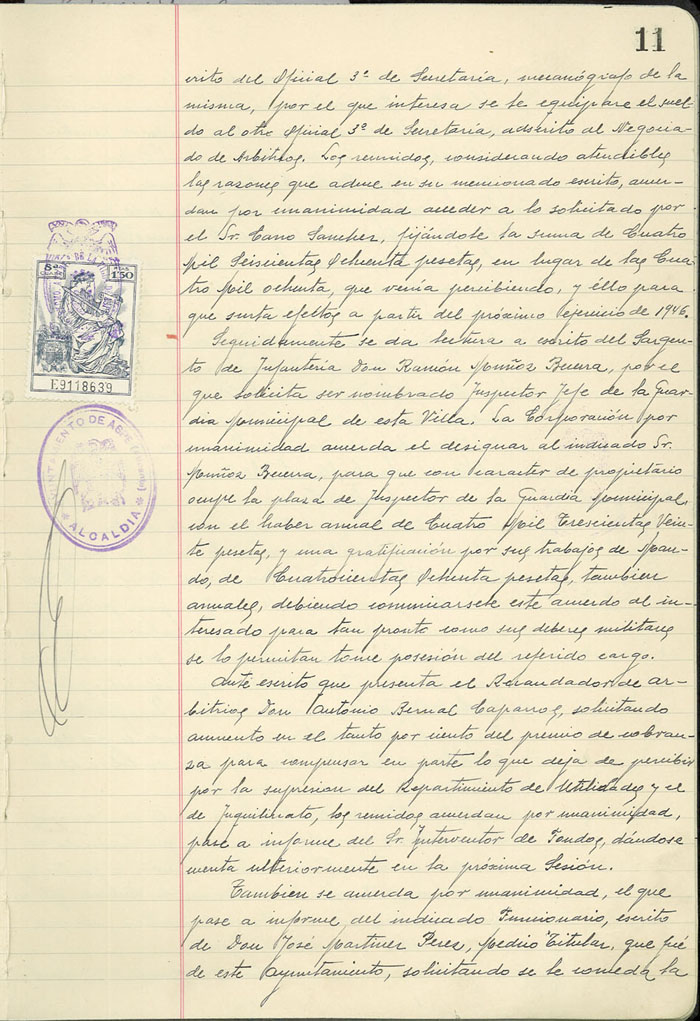 11
crito del Oficial 3º de Secretaría, mecanógrafo de la
misma, por el que interesa se le equipare el suel-
do al otro Oficial 3º de Secretaría, adscrito al Negocia-
do de Arbitrios. Los reunidos, considerando atendibles
las razones que aduce en su mencionado escrito, acuer-
dan por unanimidad acceder a lo solicitado por
el Sr. Cano Sanchez, fijándole la suma de Cuatro
Mil Seiscientas Ochenta pesetas, en lugar de las Cua-
tro Mil ochenta, que venía percibiendo, y éllo para
que surta efectos a partir del próximo ejercicio de 1946.
Seguidamente se da lectura a escrito del Sargen-
to de Infantería Don Ramón Muñoz Becerra, por el
que solicita ser nombrado Inspector Jefe de la Guar-
dia Municipal de esta Villa. La Corporación por
unanimidad acuerda el designar al indicado Sr.
Muñoz Becerra, para que con caracter de propietario
ocupe la plaza de Inspector de la Guardia Municipal,
con el haber anual de Cuatro Mil Trescientas Vein-
te pesetas, y una gratificación por sus trabajos de Man-
do, de Cuatrocientas Ochenta pesetas, tambien
anuales, debiendo comunicarsele este acuerdo al in-
teresado para tan pronto como sus deberes militares
se lo permitan tome posesión del referido cargo.
Ante escrito que presenta el Recaudador de ar-
bitrios Don Antonio Bernal Caparros, solicitando
aumento en el tanto por ciento del premio de cobran-
za para compensar en parte lo que deja de percibir
por la supresion del Repartimiento de Utilidades y el
de Inquilinato, los reunidos acuerdan por unanimidad,
pase a informe del Sr Interventor de Fondos, dándose
cuenta ulteriormente en la próxima Sesión.
Tambien se acuerda por unanimidad, el que
pase a informe del indicado Funcionario, escrito
de Don José Martinez Perez, Medico Titular, que fué
de este Ayuntamiento, solicitando se le conceda la
8ª
1'50
E9118639
AYUNTAMIENTO DE
ALCALDIA